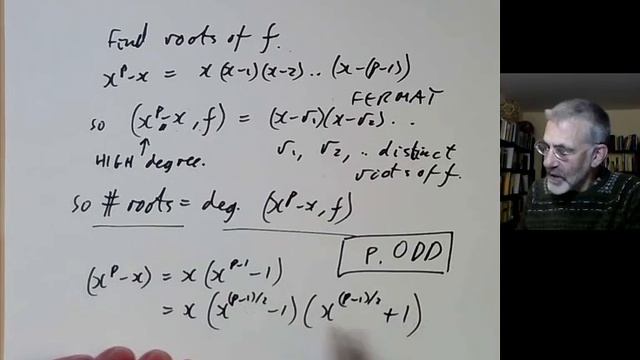 Find roots of f.
x^p - x = x (x-1)(x-2) .. (x-(p-1))
FERMAT
so (x^p - x, f) = (x-r1)(x-r2) ..
↑
HIGH degree.
r1, r2, .. distinct
roots of f.
so # roots = deg. (x^p - x, f)
p. ODD
(x^p - x) = x (x^(p-1) - 1)
= x (x^((p-1)/2) - 1) (x^((p-1)/2) + 1)